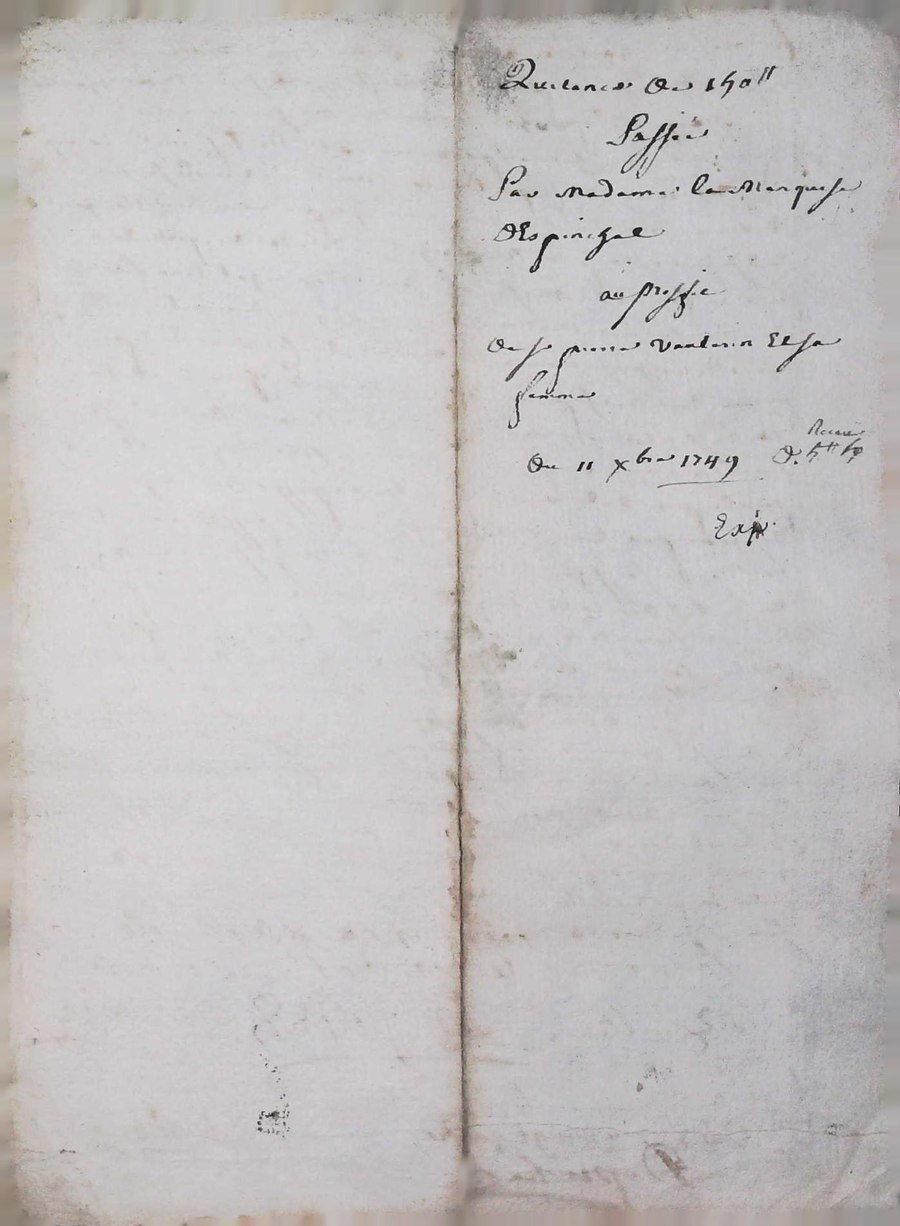 Quitance de 150ᵗᵗ
Passée
Par Madame la Marquise
d'Espinchal
au proffit
de pierre Vantorin Et Sa
femme
du 11 Xbre 1749
Exp